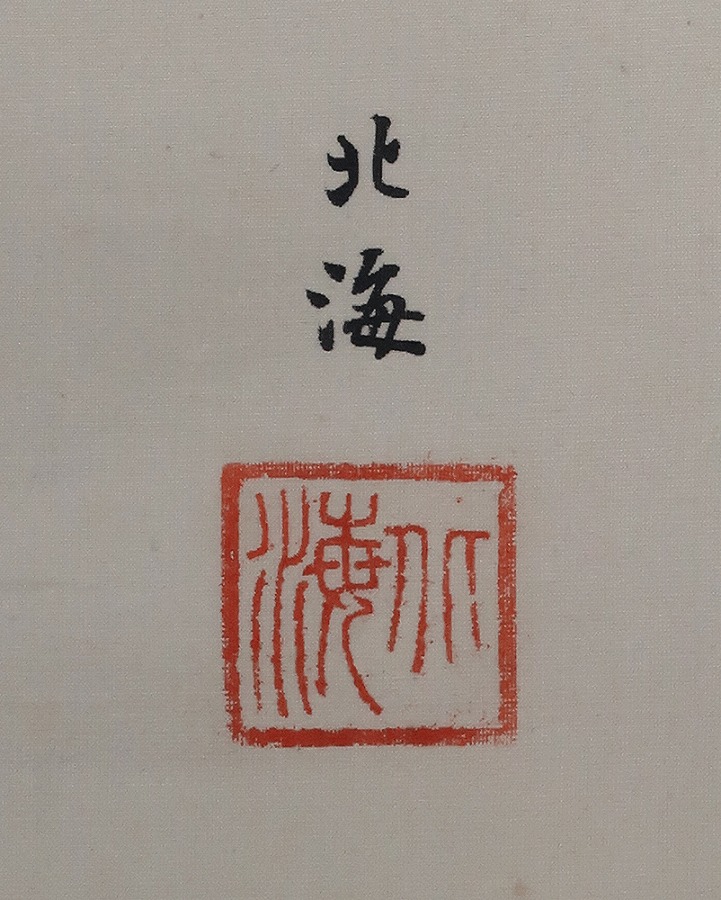 北海
北海